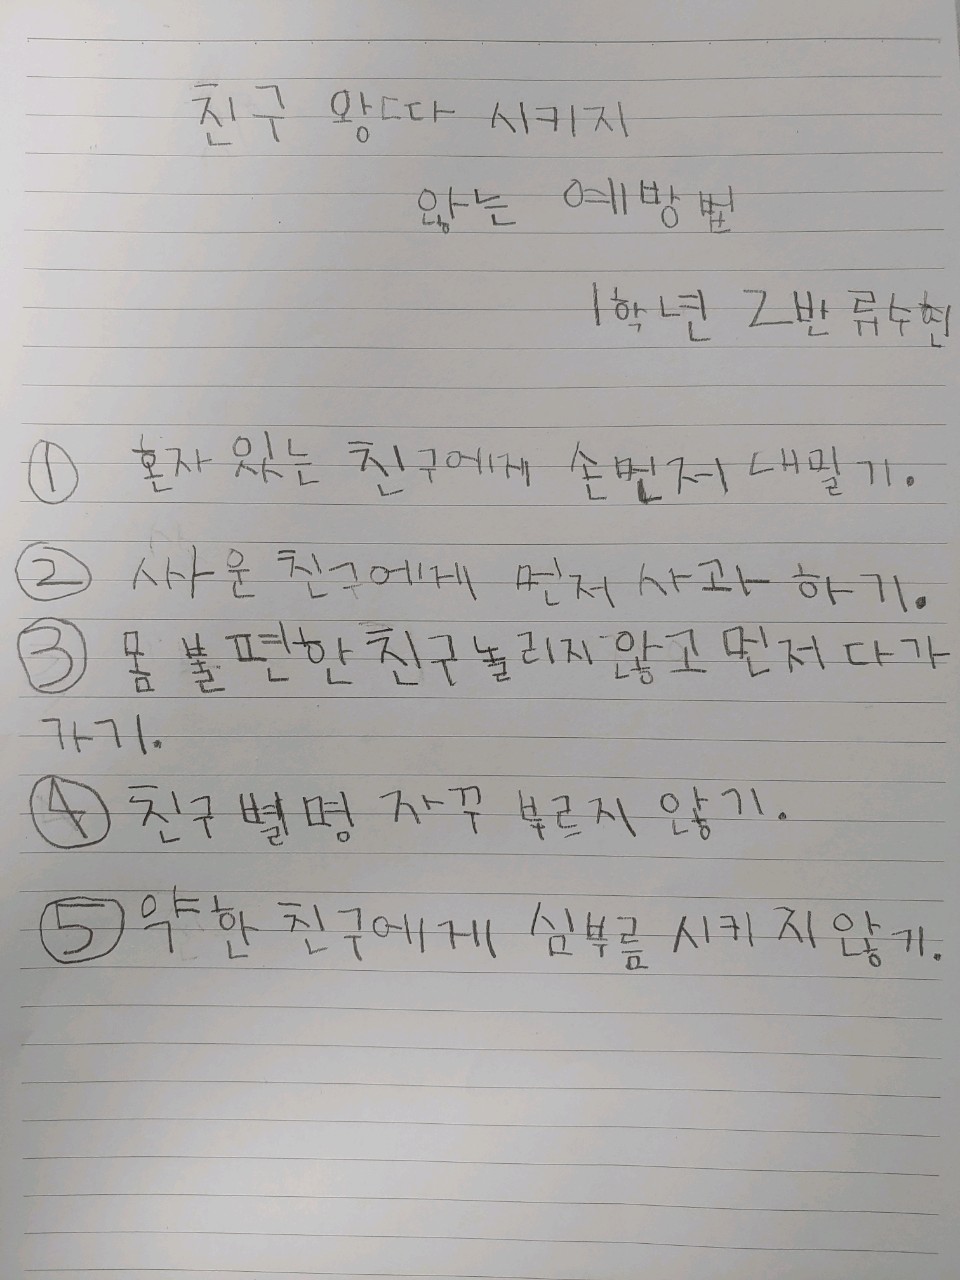 친구 왕따 시키지
않는 예방법
1학년 2반 류수현
① 혼자 있는 친구에게 손먼저 내밀기.
② 사운 친구에게 먼저 사과 하기.
③ 몸 불편한 친구 놀리지 않고 먼저 다가
가기.
④ 친구 별명 자꾸 부르지 않기.
⑤ 약한 친구에게 심부름 시키지않기.